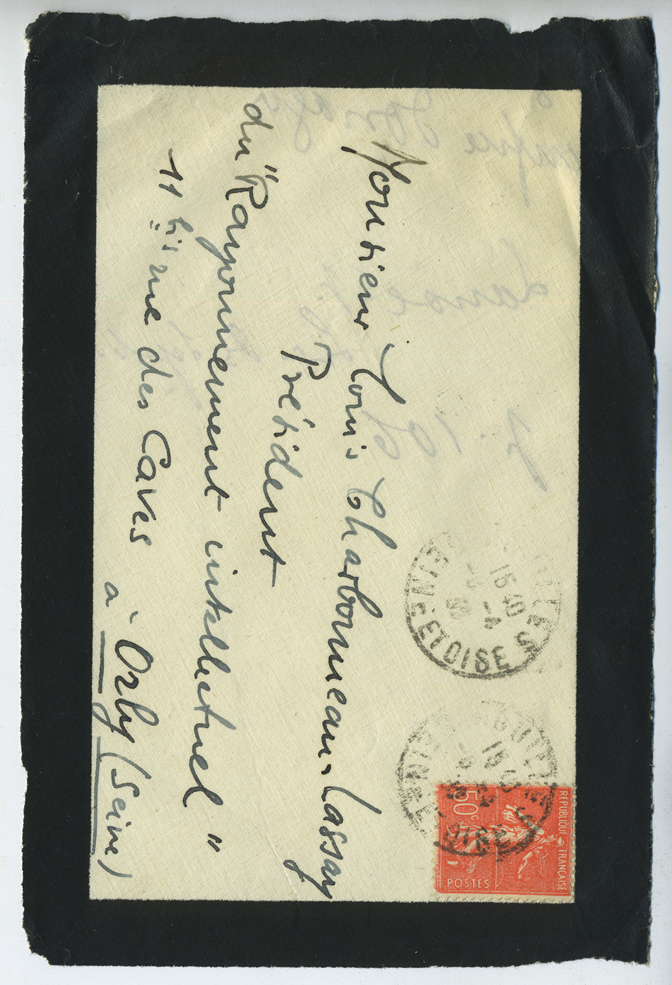 Monsieur Louis Charbonneau-Lassay
Président
du "Rayonnement intellectuel"
11 bis rue des Caves
à Orly (Seine)
15 40
ET OISE
REPUBLIQUE FRANÇAISE
50c
POSTES